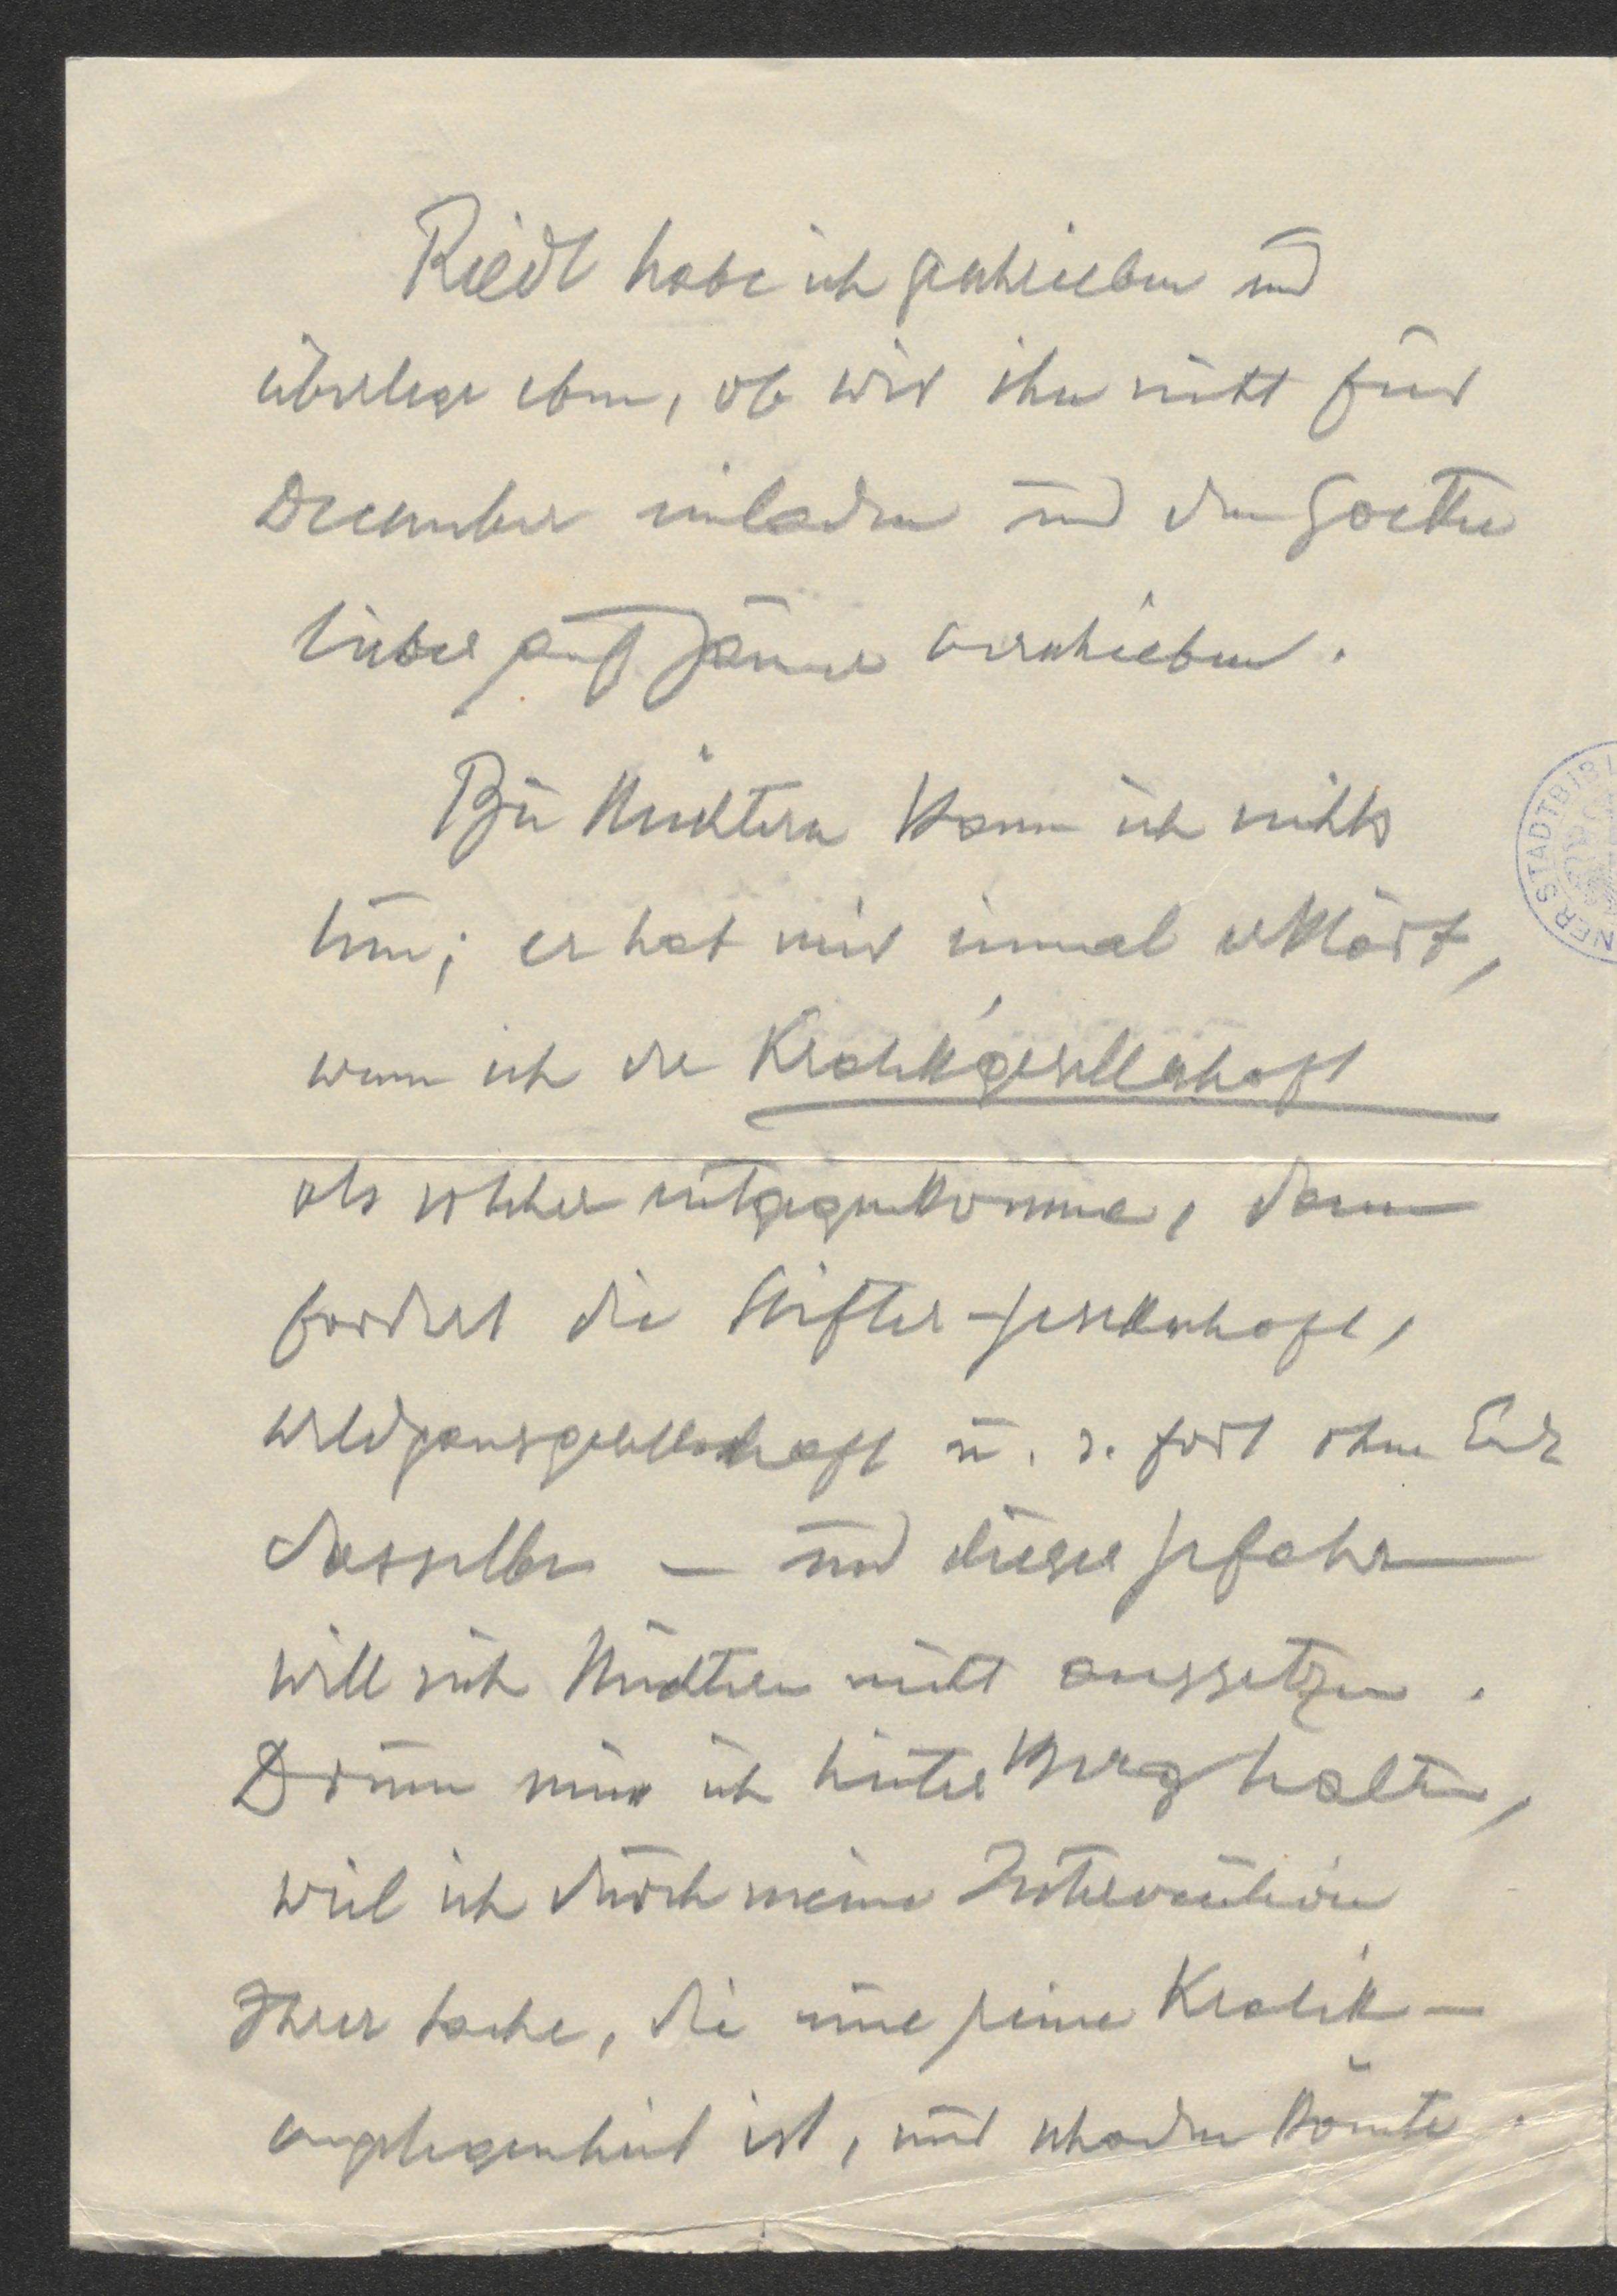 Riedl habe ich geschrieben und
überlege eben, ob wir ihn nicht für
December einladen und den Goethe
lieber auf Jänner verschieben.
Bei Nüchtern kann ich nichts
tun; er hat mir einmal erklärt,
wenn ich der Kralikgesellschaft
als solcher entgegenkomme, dann
fordert die Stifter-Gesellschaft,
Wildgansgesellschaft u. s. fort ohne Ende
dasselbe — und dieser Gefahr
will sich Nüchtern nicht aussetzen.
Drum muss ich hinter Berg halten,
weil ich durch meine Intervention
Ihrer Sache, die eine reine Kralik-
angelegenheit ist, nur schaden könnte.
NER STADTBIBLI